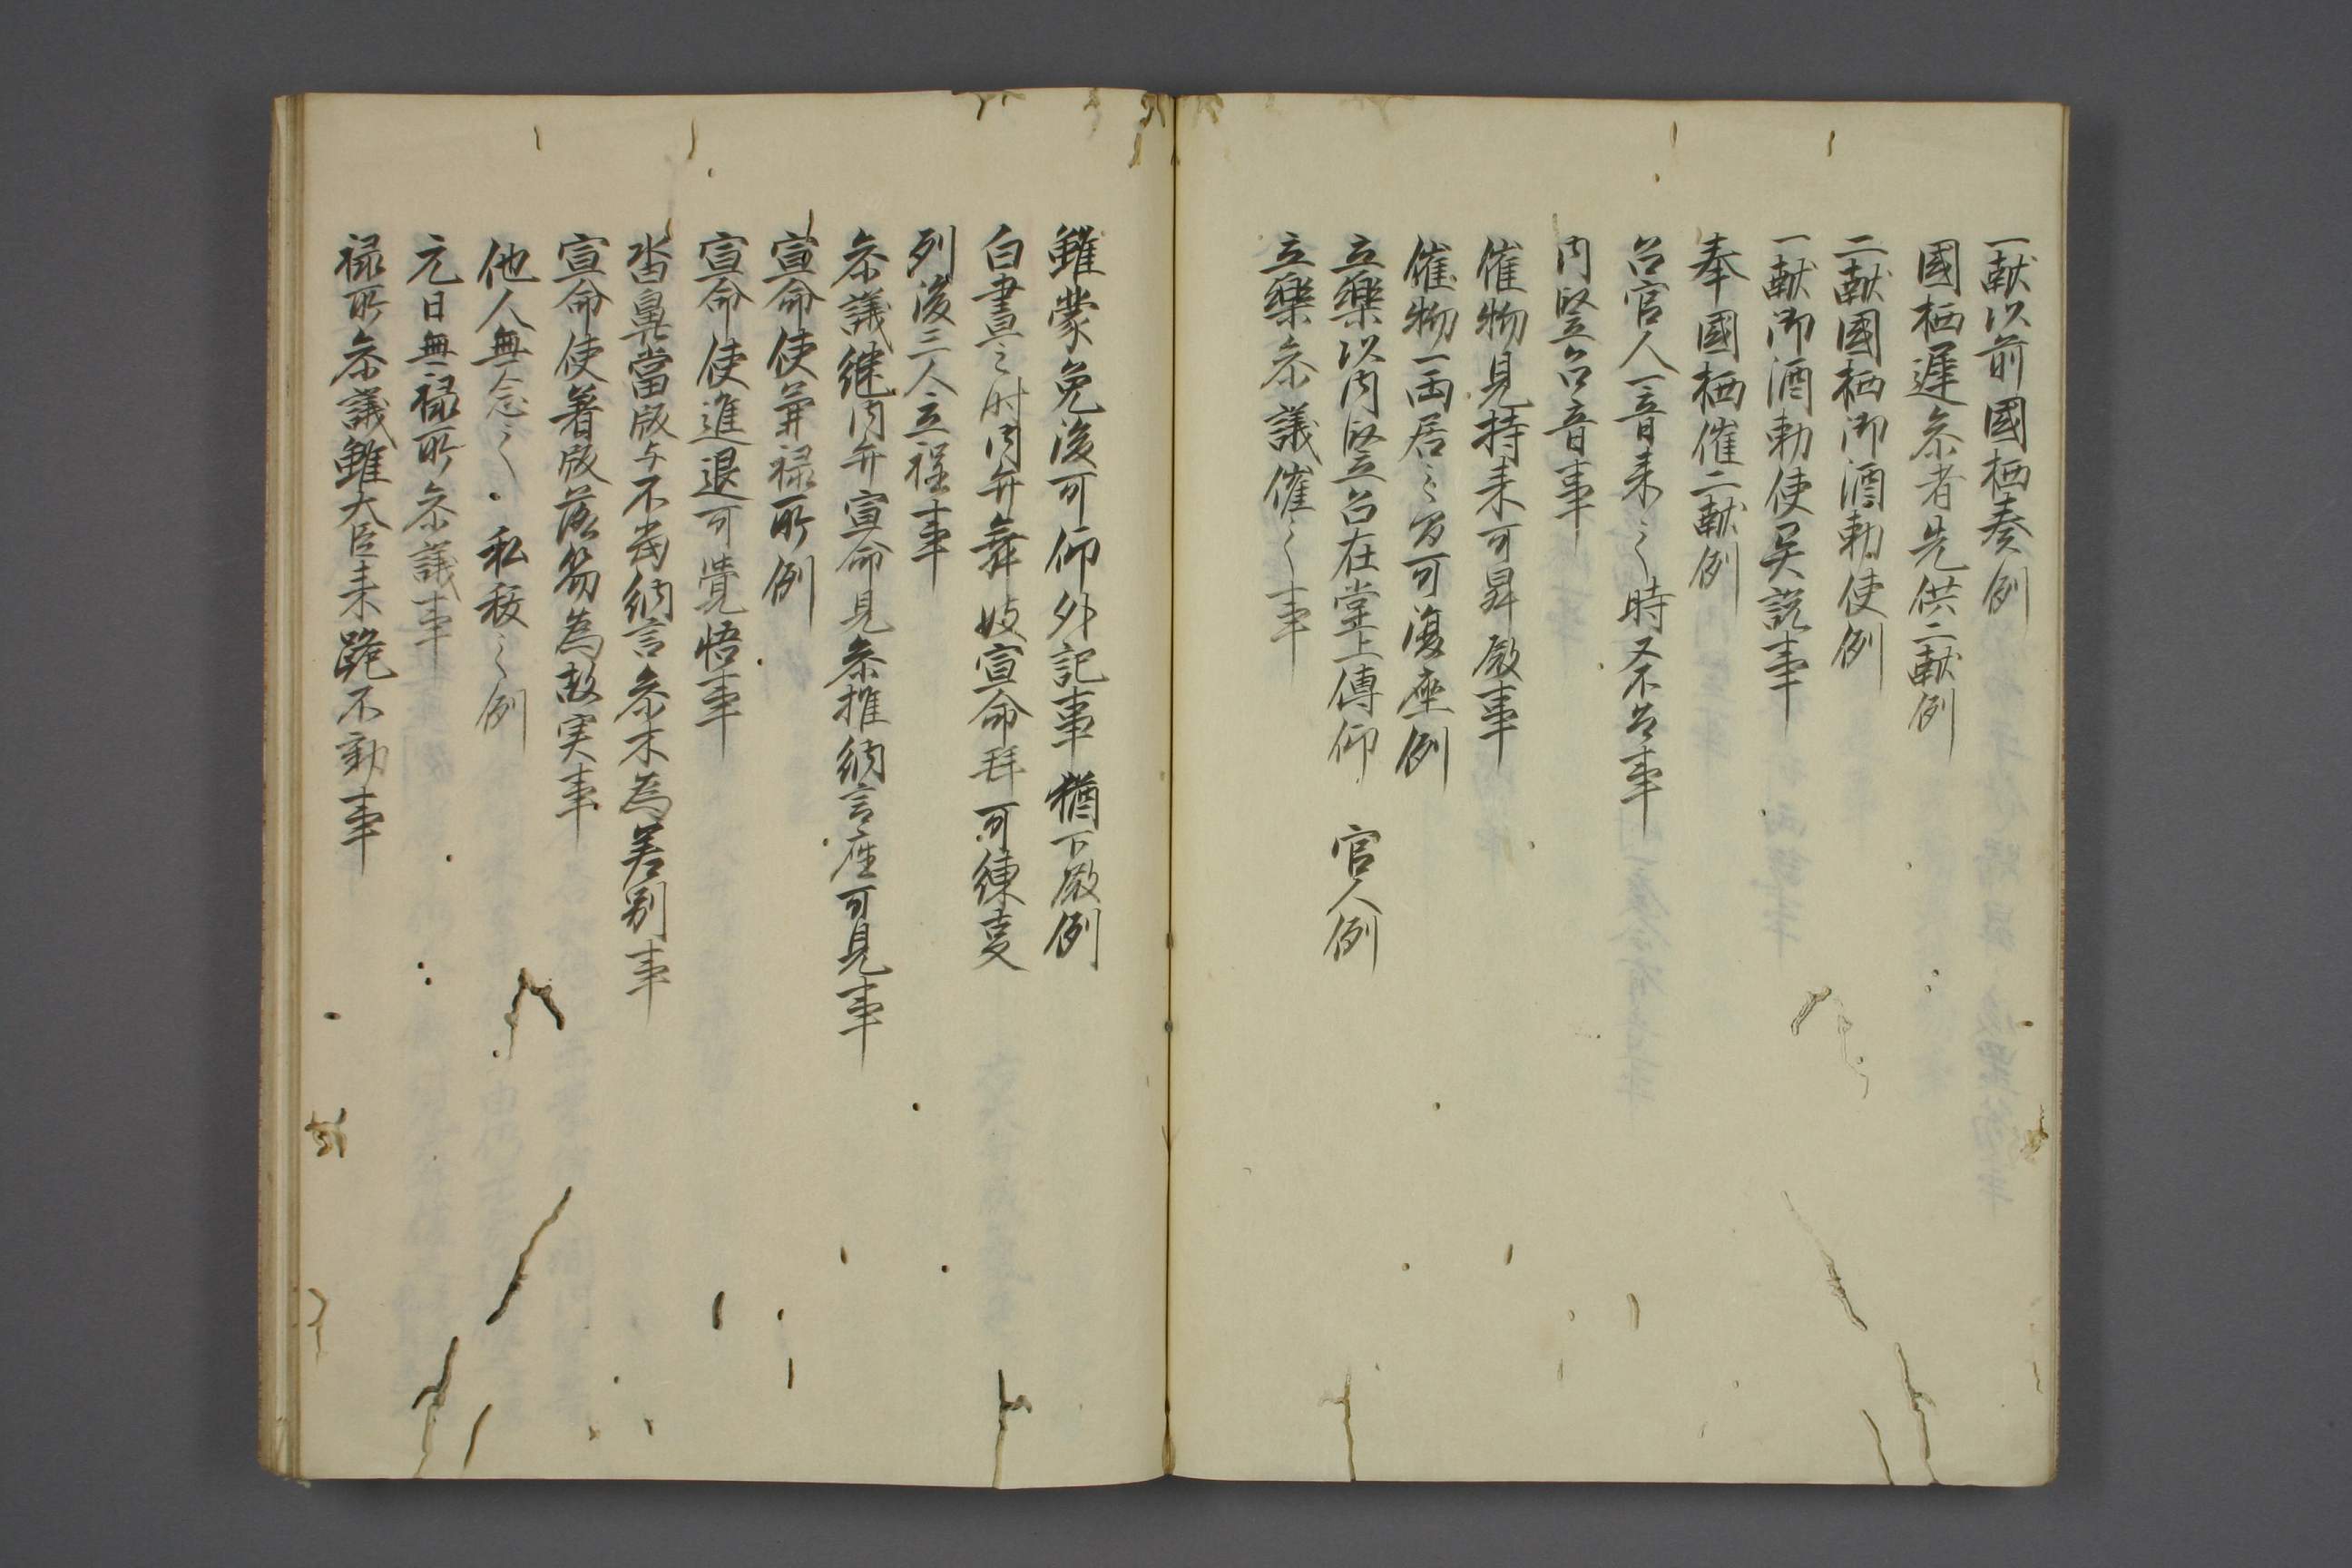 一献以前國栖奏例
國栖遅参者先供二献例
二献國栖御酒勅使例
一献御酒勅使異説事
奉國栖催二献例
召官人一音来之時又不召事
内竪召音事
催物見持来可昇殿事
催物一両居之後可復座例
立樂以内竪召在堂上傳仰　官人例
立樂参議催之事
雖蒙免後可仰外記事猶下殿例
白晝之時内弁舞妓宣命拜可練事
列後三人立程事
参議継内弁宣命見参推納言座可見事
宣命使兼禄所例
宣命使進退可覺悟事
沓鼻當版与不當納言参木為差別事
宣命使著版落笏為故実事
他人無念之　私秘之例
元日無禄所参議事
禄所参議雖大臣来跪不動事